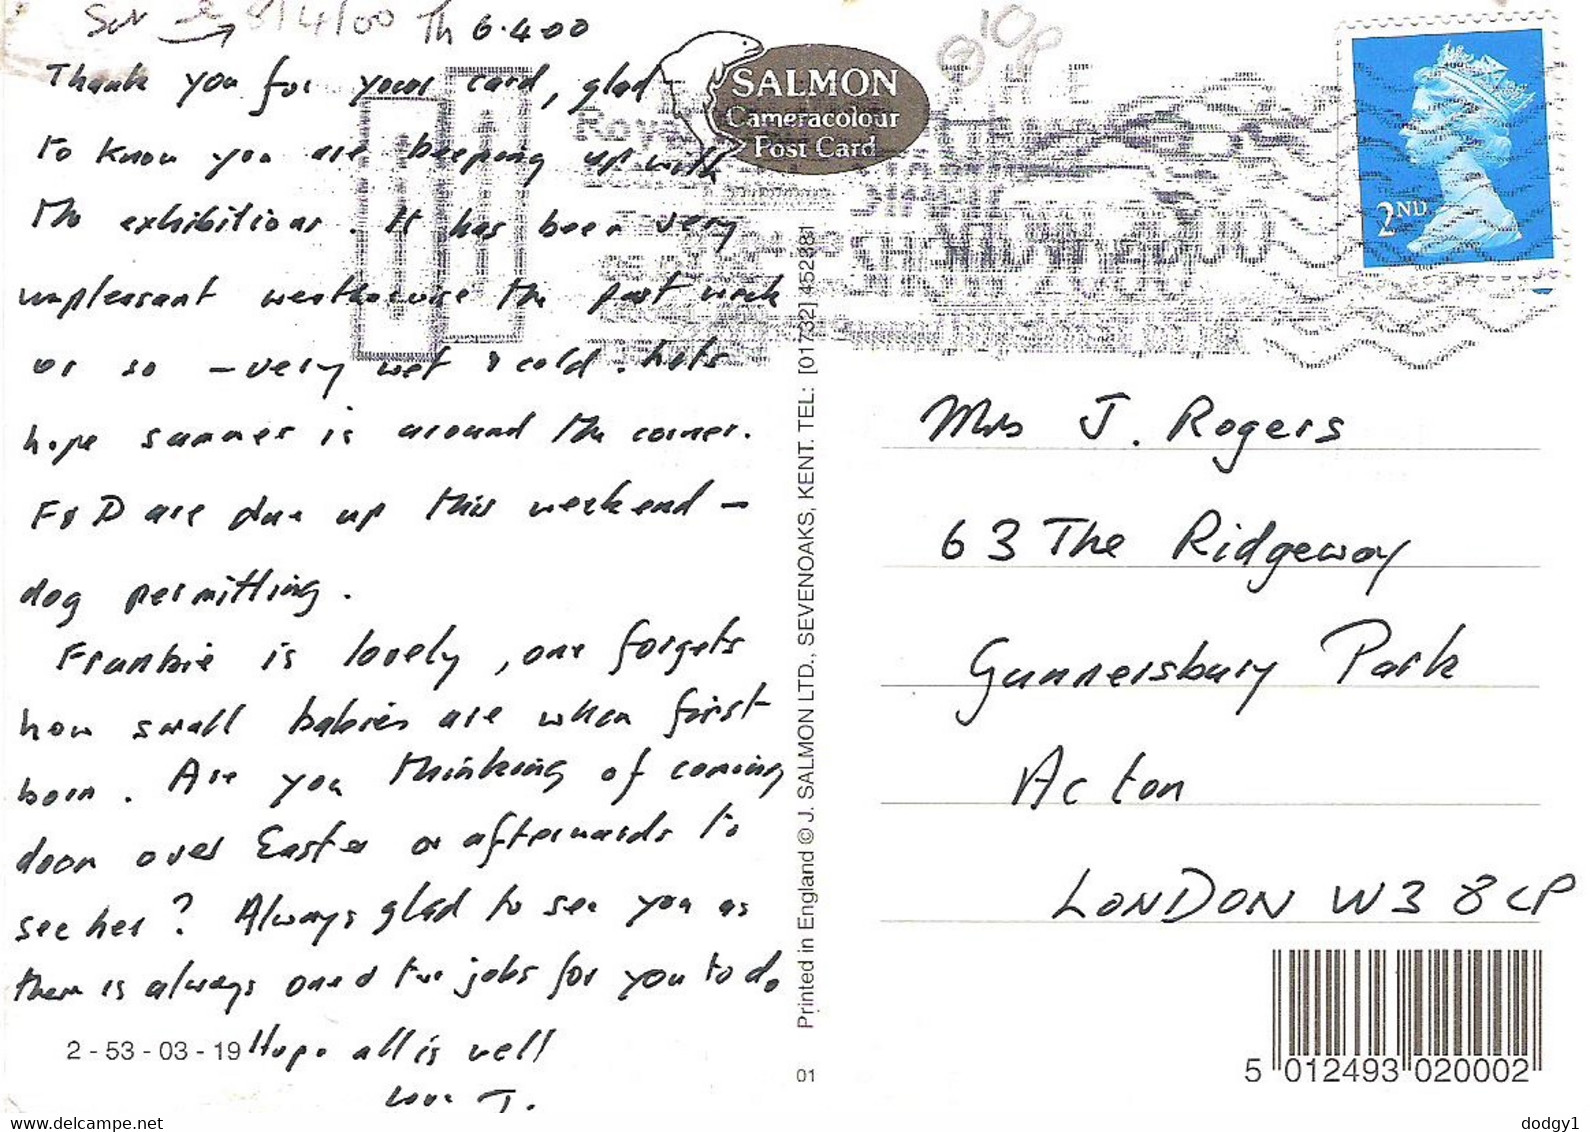 Sat 8/4/00 Th 6.4.00
Thank you for your card, glad
to know you are keeping up with
the exhibitions. It has been very
unpleasant weatherwise the past week
or so - very wet & cold. Lets
hope summer is around the corner.
F & D are due up this weekend -
dog permitting.
Frankie is lovely, one forgets
how small babies are when first
born. Are you thinking of coming
down over Easter or afterwards to
see her? Always glad to see you as
there is always one or two jobs for you to do.
Hope all is well
Love J.
2 - 53 - 03 - 19
SALMON
Cameracolour
Post Card
Royal
2ND
Printed in England © J. SALMON LTD., SEVENOAKS, KENT. TEL: [01732] 452381
01
Mrs J. Rogers
63 The Ridgeway
Gunnersbury Park
Acton
LONDON W3 8LP
5 012493 020002
www.delcampe.net
dodgy1